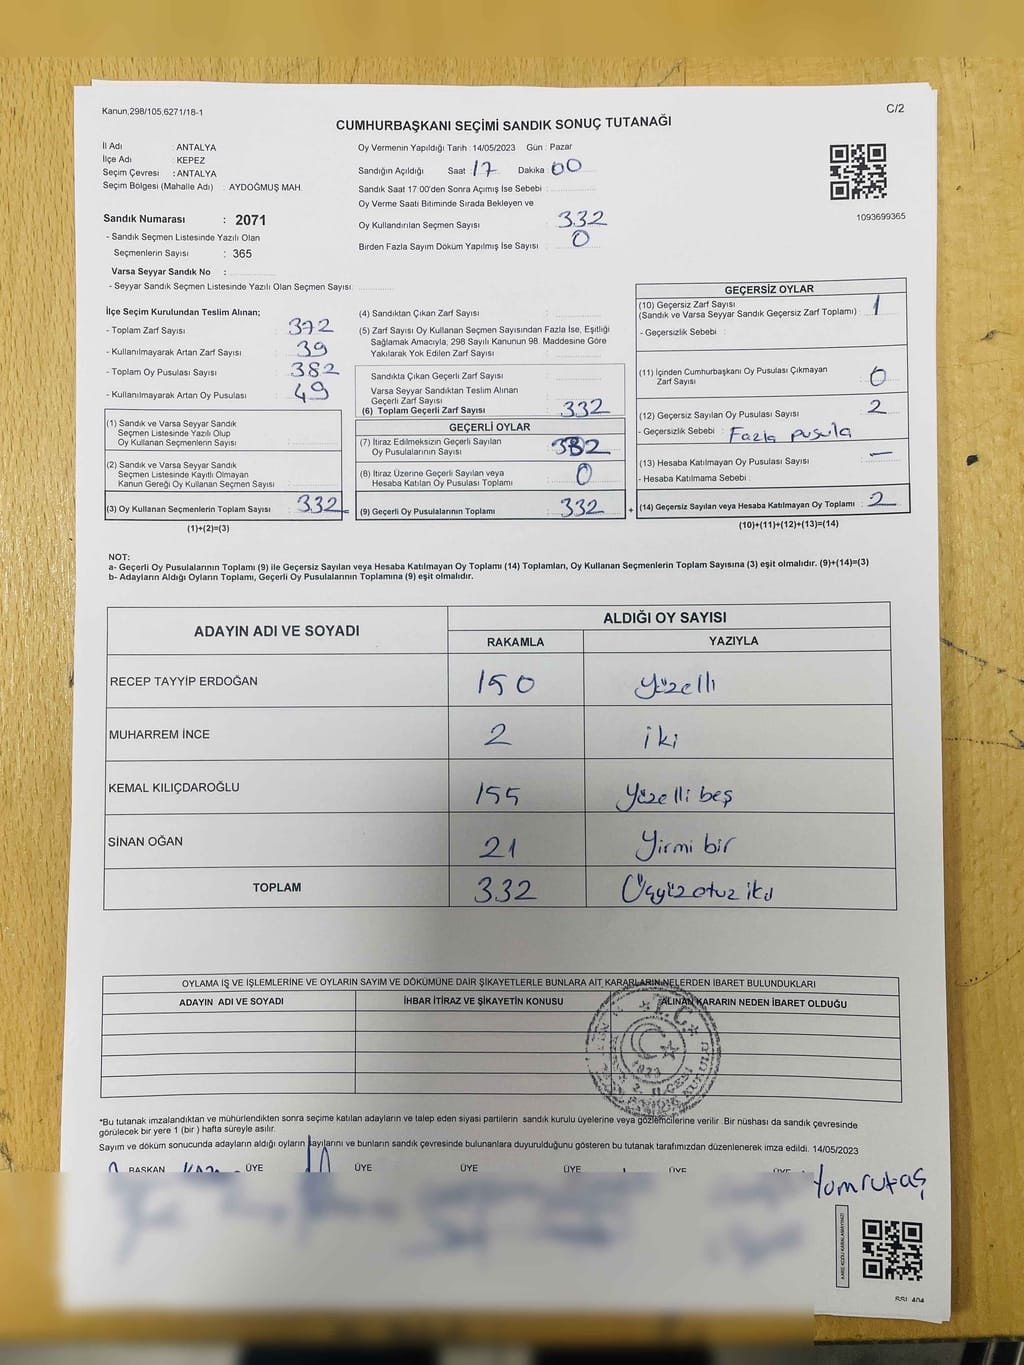 Kanun,298/105,6271/18-1
C/2
CUMHURBAŞKANI SEÇİMİ SANDIK SONUÇ TUTANAĞI
İl Adı : ANTALYA
İlçe Adı : KEPEZ
Seçim Çevresi : ANTALYA
Seçim Bölgesi (Mahalle Adı) : AYDOĞMUŞ MAH.
Sandık Numarası : 2071
- Sandık Seçmen Listesinde Yazılı Olan
Seçmenlerin Sayısı : 365
Varsa Seyyar Sandık No :
- Seyyar Sandık Seçmen Listesinde Yazılı Olan Seçmen Sayısı:
Oy Vermenin Yapıldığı Tarih : 14/05/2023 Gün : Pazar
Sandığın Açıldığı Saat : 17 Dakika : 00
Sandık Saat 17:00'den Sonra Açımış İse Sebebi :
Oy Verme Saati Bitiminde Sırada Bekleyen ve
Oy Kullandırılan Seçmen Sayısı : 332
Birden Fazla Sayım Döküm Yapılmış İse Sayısı : 0
1093699365
İlçe Seçim Kurulundan Teslim Alınan;
- Toplam Zarf Sayısı : 372
- Kullanılmayarak Artan Zarf Sayısı : 39
- Toplam Oy Pusulası Sayısı : 382
- Kullanılmayarak Artan Oy Pusulası : 49
(1) Sandık ve Varsa Seyyar Sandık
Seçmen Listesinde Yazılı Olup
Oy Kullanan Seçmenlerin Sayısı :
(2) Sandık ve Varsa Seyyar Sandık
Seçmen Listesinde Kayıtlı Olmayan
Kanun Gereği Oy Kullanan Seçmen Sayısı :
(3) Oy Kullanan Seçmenlerin Toplam Sayısı : 332
(1)+(2)=(3)
(4) Sandıktan Çıkan Zarf Sayısı :
(5) Zarf Sayısı Oy Kullanan Seçmen Sayısından Fazla İse, Eşitliği
Sağlamak Amacıyla; 298 Sayılı Kanunun 98. Maddesine Göre
Yakılarak Yok Edilen Zarf Sayısı :
Sandıkta Çıkan Geçerli Zarf Sayısı :
Varsa Seyyar Sandıktan Teslim Alınan
Geçerli Zarf Sayısı :
(6) Toplam Geçerli Zarf Sayısı : 332
GEÇERLİ OYLAR
(7) İtiraz Edilmeksizin Geçerli Sayılan
Oy Pusulalarının Sayısı : 332
(8) İtiraz Üzerine Geçerli Sayılan veya
Hesaba Katılan Oy Pusulası Toplamı : 0
(9) Geçerli Oy Pusulalarının Toplamı : 332
GEÇERSİZ OYLAR
(10) Geçersiz Zarf Sayısı
(Sandık ve Varsa Seyyar Sandık Geçersiz Zarf Toplamı) : 1
- Geçersizlik Sebebi :
(11) İçinden Cumhurbaşkanı Oy Pusulası Çıkmayan
Zarf Sayısı : 0
(12) Geçersiz Sayılan Oy Pusulası Sayısı : 2
- Geçersizlik Sebebi : Fazla pusula
(13) Hesaba Katılmayan Oy Pusulası Sayısı : —
- Hesaba Katılmama Sebebi :
+ (14) Geçersiz Sayılan veya Hesaba Katılmayan Oy Toplamı : 2
(10)+(11)+(12)+(13)=(14)
NOT:
a- Geçerli Oy Pusulalarının Toplamı (9) ile Geçersiz Sayılan veya Hesaba Katılmayan Oy Toplamı (14) Toplamları, Oy Kullanan Seçmenlerin Toplam Sayısına (3) eşit olmalıdır. (9)+(14)=(3)
b- Adayların Aldığı Oyların Toplamı, Geçerli Oy Pusulalarının Toplamına (9) eşit olmalıdır.
ADAYIN ADI VE SOYADI ALDIĞI OY SAYISI
RAKAMLA YAZIYLA
RECEP TAYYİP ERDOĞAN 150 Yüzelli
MUHARREM İNCE 2 iki
KEMAL KILIÇDAROĞLU 155 Yüzelli beş
SİNAN OĞAN 21 Yirmi bir
TOPLAM 332 Üçyüzotuz iki
OYLAMA İŞ VE İŞLEMLERİNE VE OYLARIN SAYIM VE DÖKÜMÜNE DAİR ŞİKAYETLERLE BUNLARA AİT KARARLARIN NELERDEN İBARET BULUNDUKLARI
ADAYIN ADI VE SOYADI İHBAR İTİRAZ VE ŞİKAYETİN KONUSU ALINAN KARARIN NEDEN İBARET OLDUĞU
T.C.
1923
*Bu tutanak imzalandıktan ve mühürlendikten sonra seçime katılan adayların ve talep eden siyasi partilerin sandık kurulu üyelerine veya gözlemcilerine verilir. Bir nüshası da sandık çevresinde
görülecek bir yere 1 (bir ) hafta süreyle asılır.
Sayım ve döküm sonucunda adayların aldığı oyların sayılarını ve bunların sandık çevresinde bulunanlara duyurulduğunu gösteren bu tutanak tarafımızdan düzenlenerek imza edildi. 14/05/2023
BAŞKAN ÜYE ÜYE ÜYE ÜYE ÜYE ÜYE
Yomrutaş